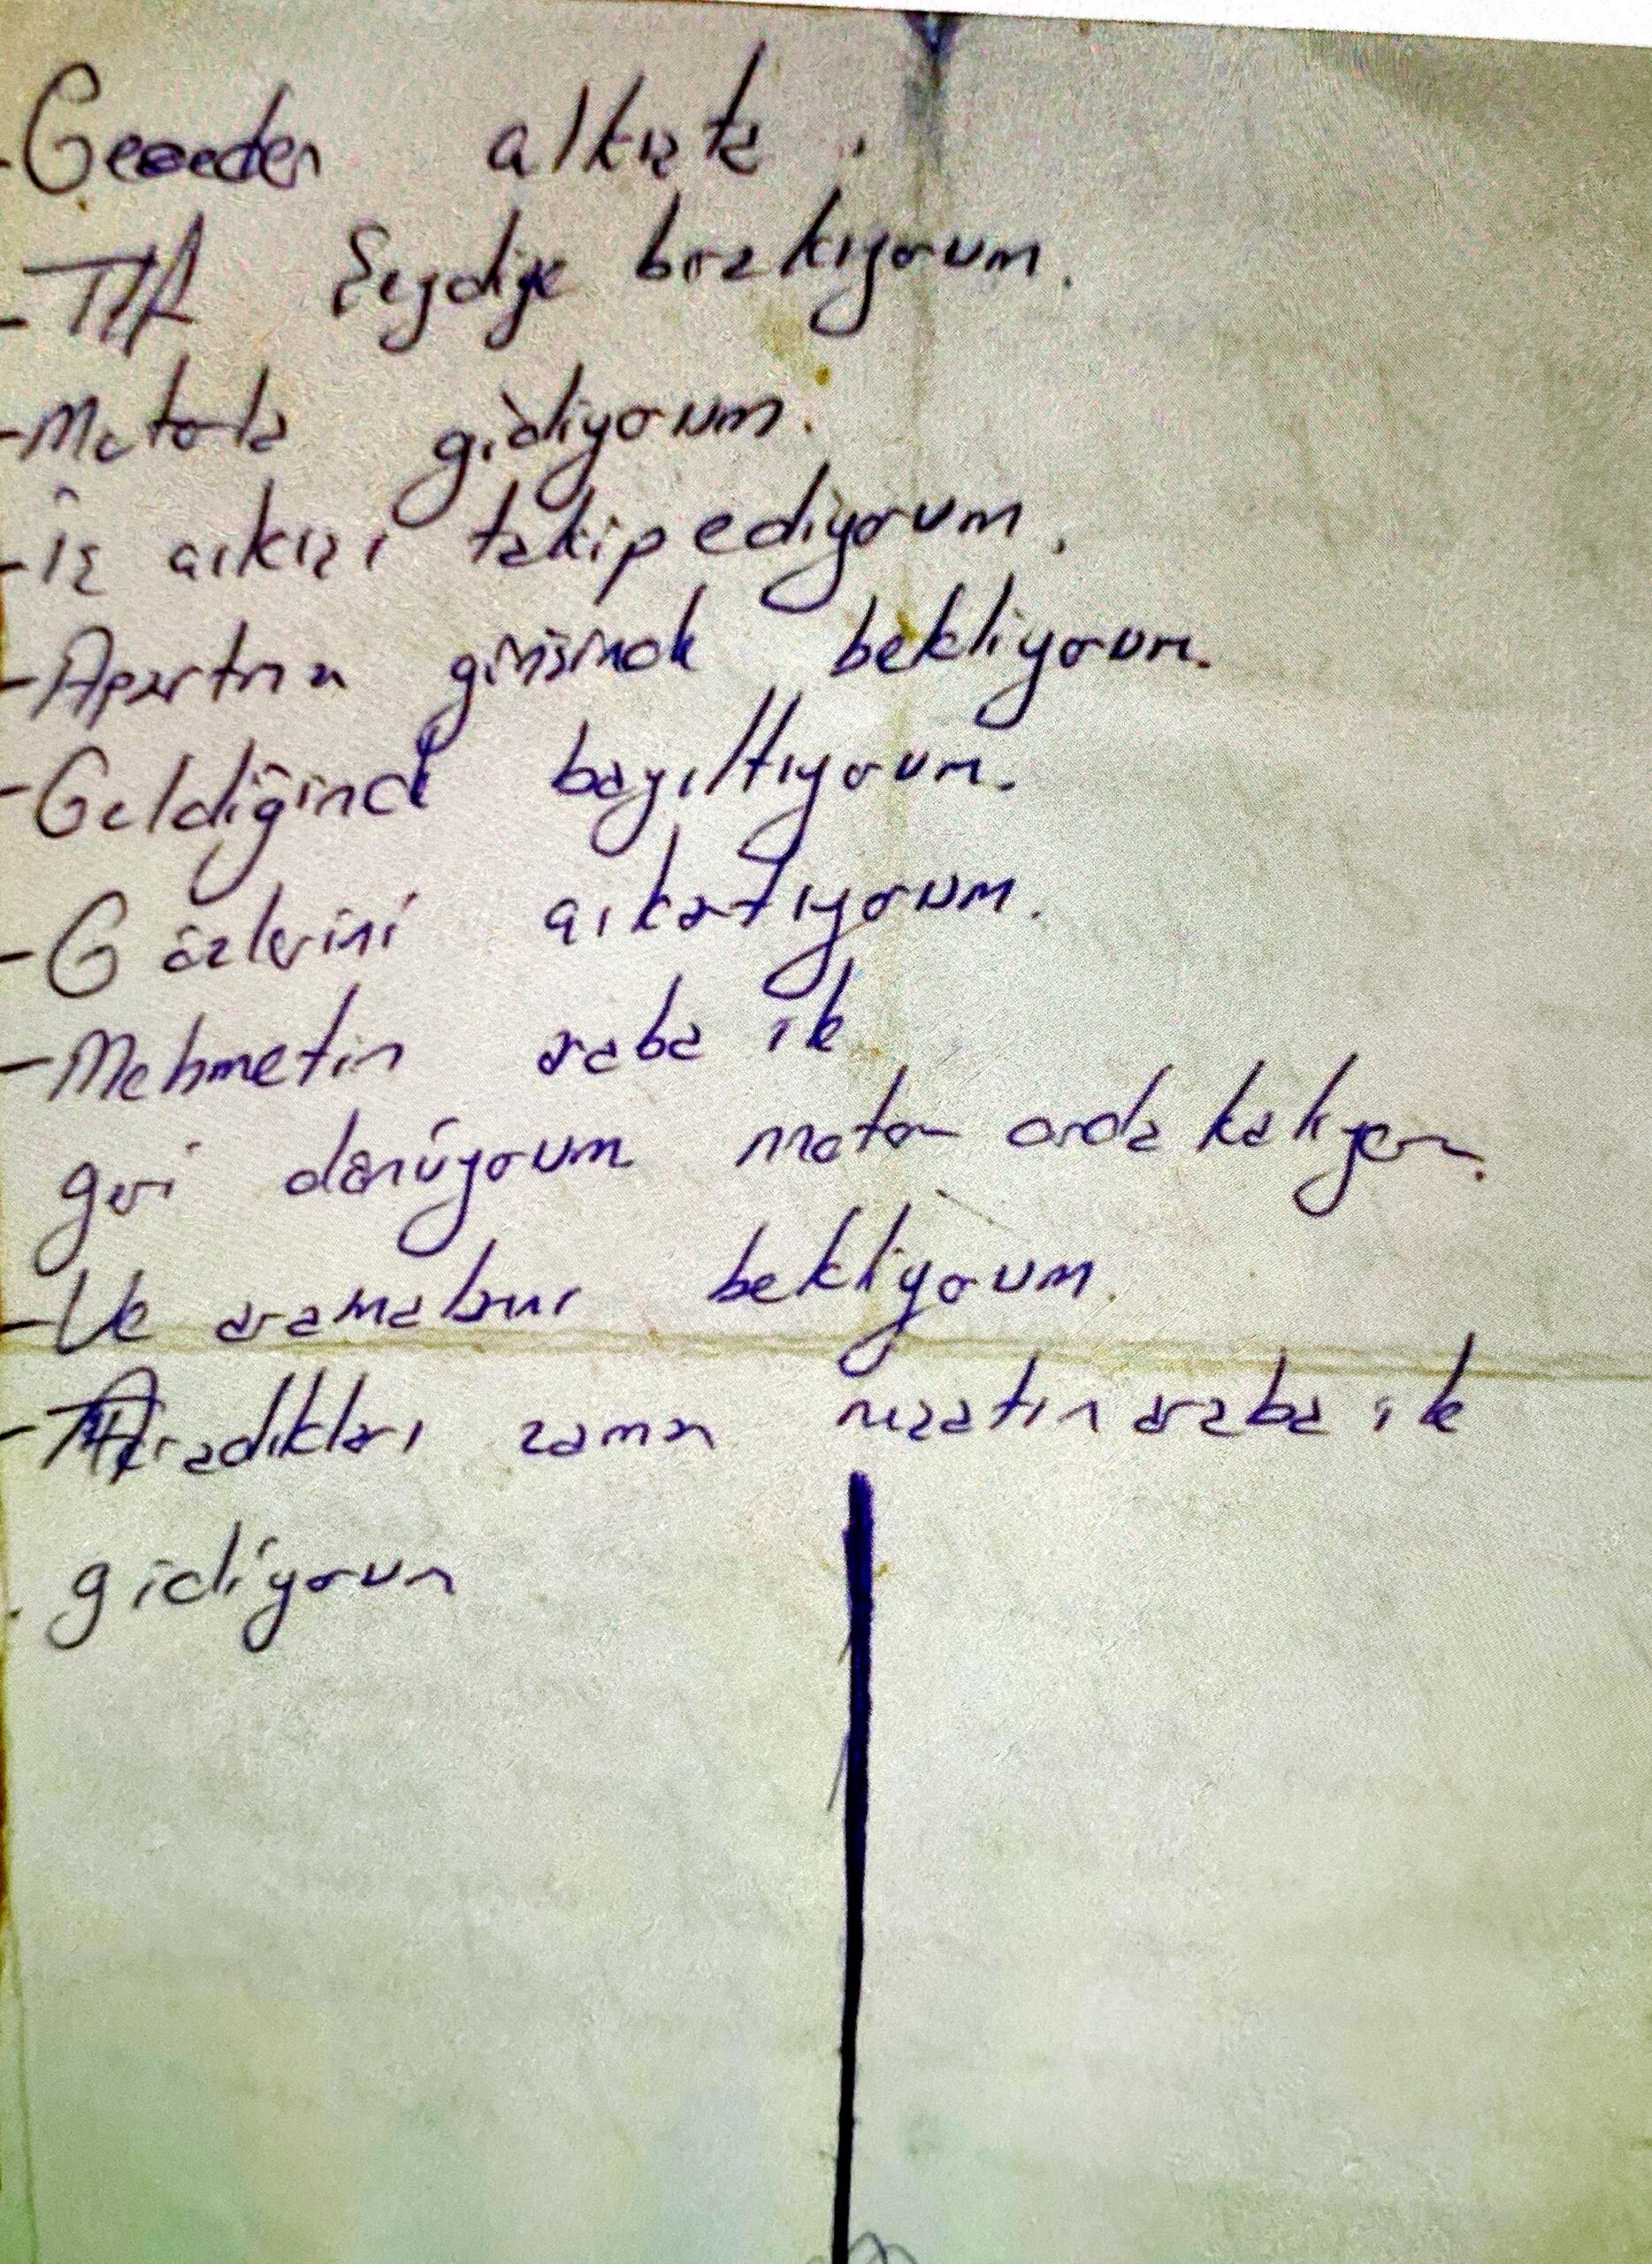 - Geceden
- TIR Seydiye bırakıyorum.
- Motorla gidiyorum.
- İş çıkışı takip ediyorum.
- Apartman girişinde bekliyorum.
- Geldiğinde bayıltıyorum.
- Gözlerini çıkartıyorum.
- Mehmetin araba ile
geri dönüyorum motor orda kalıyor.
- Ve aramalarını bekliyorum.
- Aradıkları zaman araba ile
gidiyorum